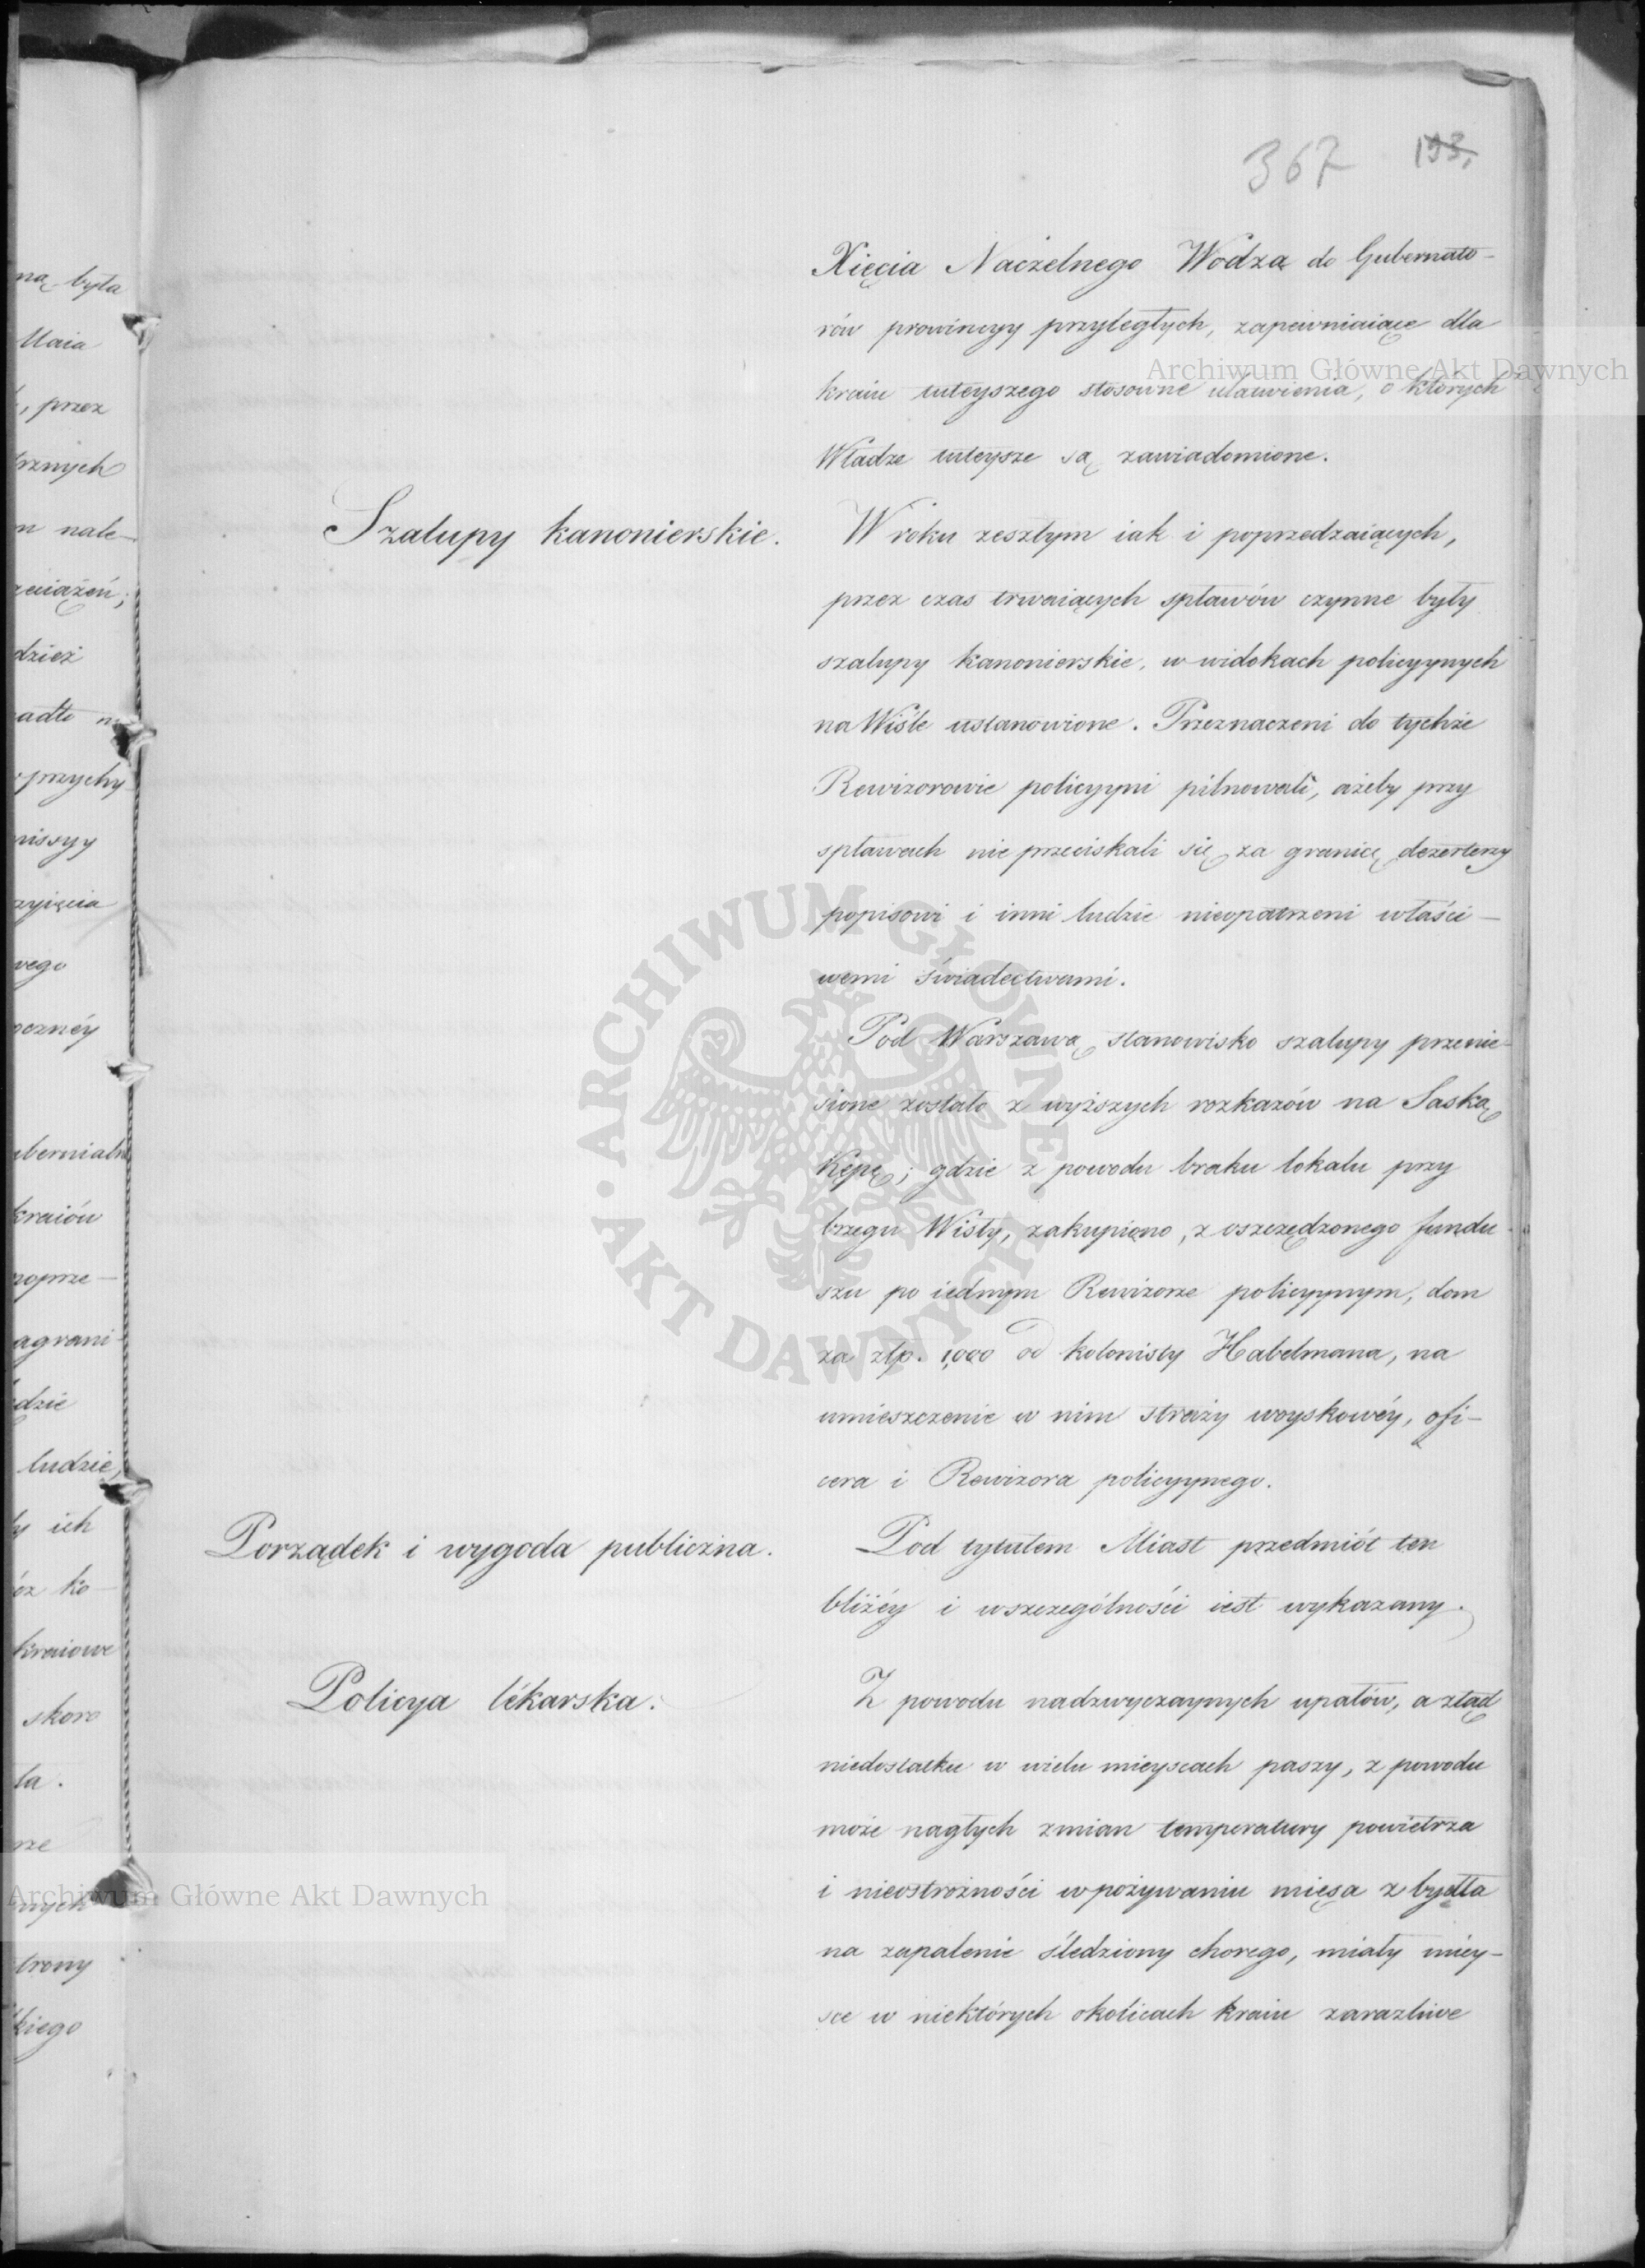 367 193,
Xięcia Naczelnego Wodza do Gubernato-
rów prowincyy przyległych, zapewniaiące dla
kraiu tuteyszego stosowne ułatwienia, o których
Władze tuteysze są zawiadomione.
Szalupy kanonierskie.
W roku zeszłym iak i poprzedzaiących,
przez czas trwaiących spławów czynne były
szalupy kanonierskie, w widokach policyynych
na Wiśle ustanowione. Przeznaczeni do tychże
Rewizorowie policyyni pilnowali, ażeby przy
spławach nie przeciskali się za granicę dezerterzy
popisowi i inni ludzie nieopatrzeni właści-
wemi świadectwami.
Pod Warszawą stanowisko szalupy przenie-
sione zostało z wyższych rozkazów na Saską
Kępę; gdzie z powodu braku lokalu przy
brzegu Wisły, zakupiono, z oszczędzonego fundu-
szu po iednym Rewizorze policyynym, dom
za złp. 1,000 od kolonisty Habelmana, na
umieszczenie w nim straży woyskowéy, ofi-
cera i Rewizora policyynego.
Porządek i wygoda publiczna.
Pod tytułem Miast przedmiót ten
bliżéy i wszczególności iest wykazany.
Policya lékarska.
Z powodu nadzwyczaynych upałów, a ztąd
niedostatku w wielu mieyscach paszy, z powodu
może nagłych zmian temperatury powietrza
i nieostrożności w pożywaniu mięsa z bydła
na zapalenie śledziony chorego, miały miey-
sce w niektórych okolicach kraiu zaraźliwe
ną była
Maia
, przez
trznych
m nale-
dzież
przychy
missyy
wego
kraiów
poprze-
agrani-
dzie
ludzie,
ły ich
kraiowe
skoro
ła.
trony
kiego
Archiwum Główne Akt Dawnych
ARCHIWUM GŁÓWNE · AKT DAWNYCH ·
Archiwum Główne Akt Dawnych